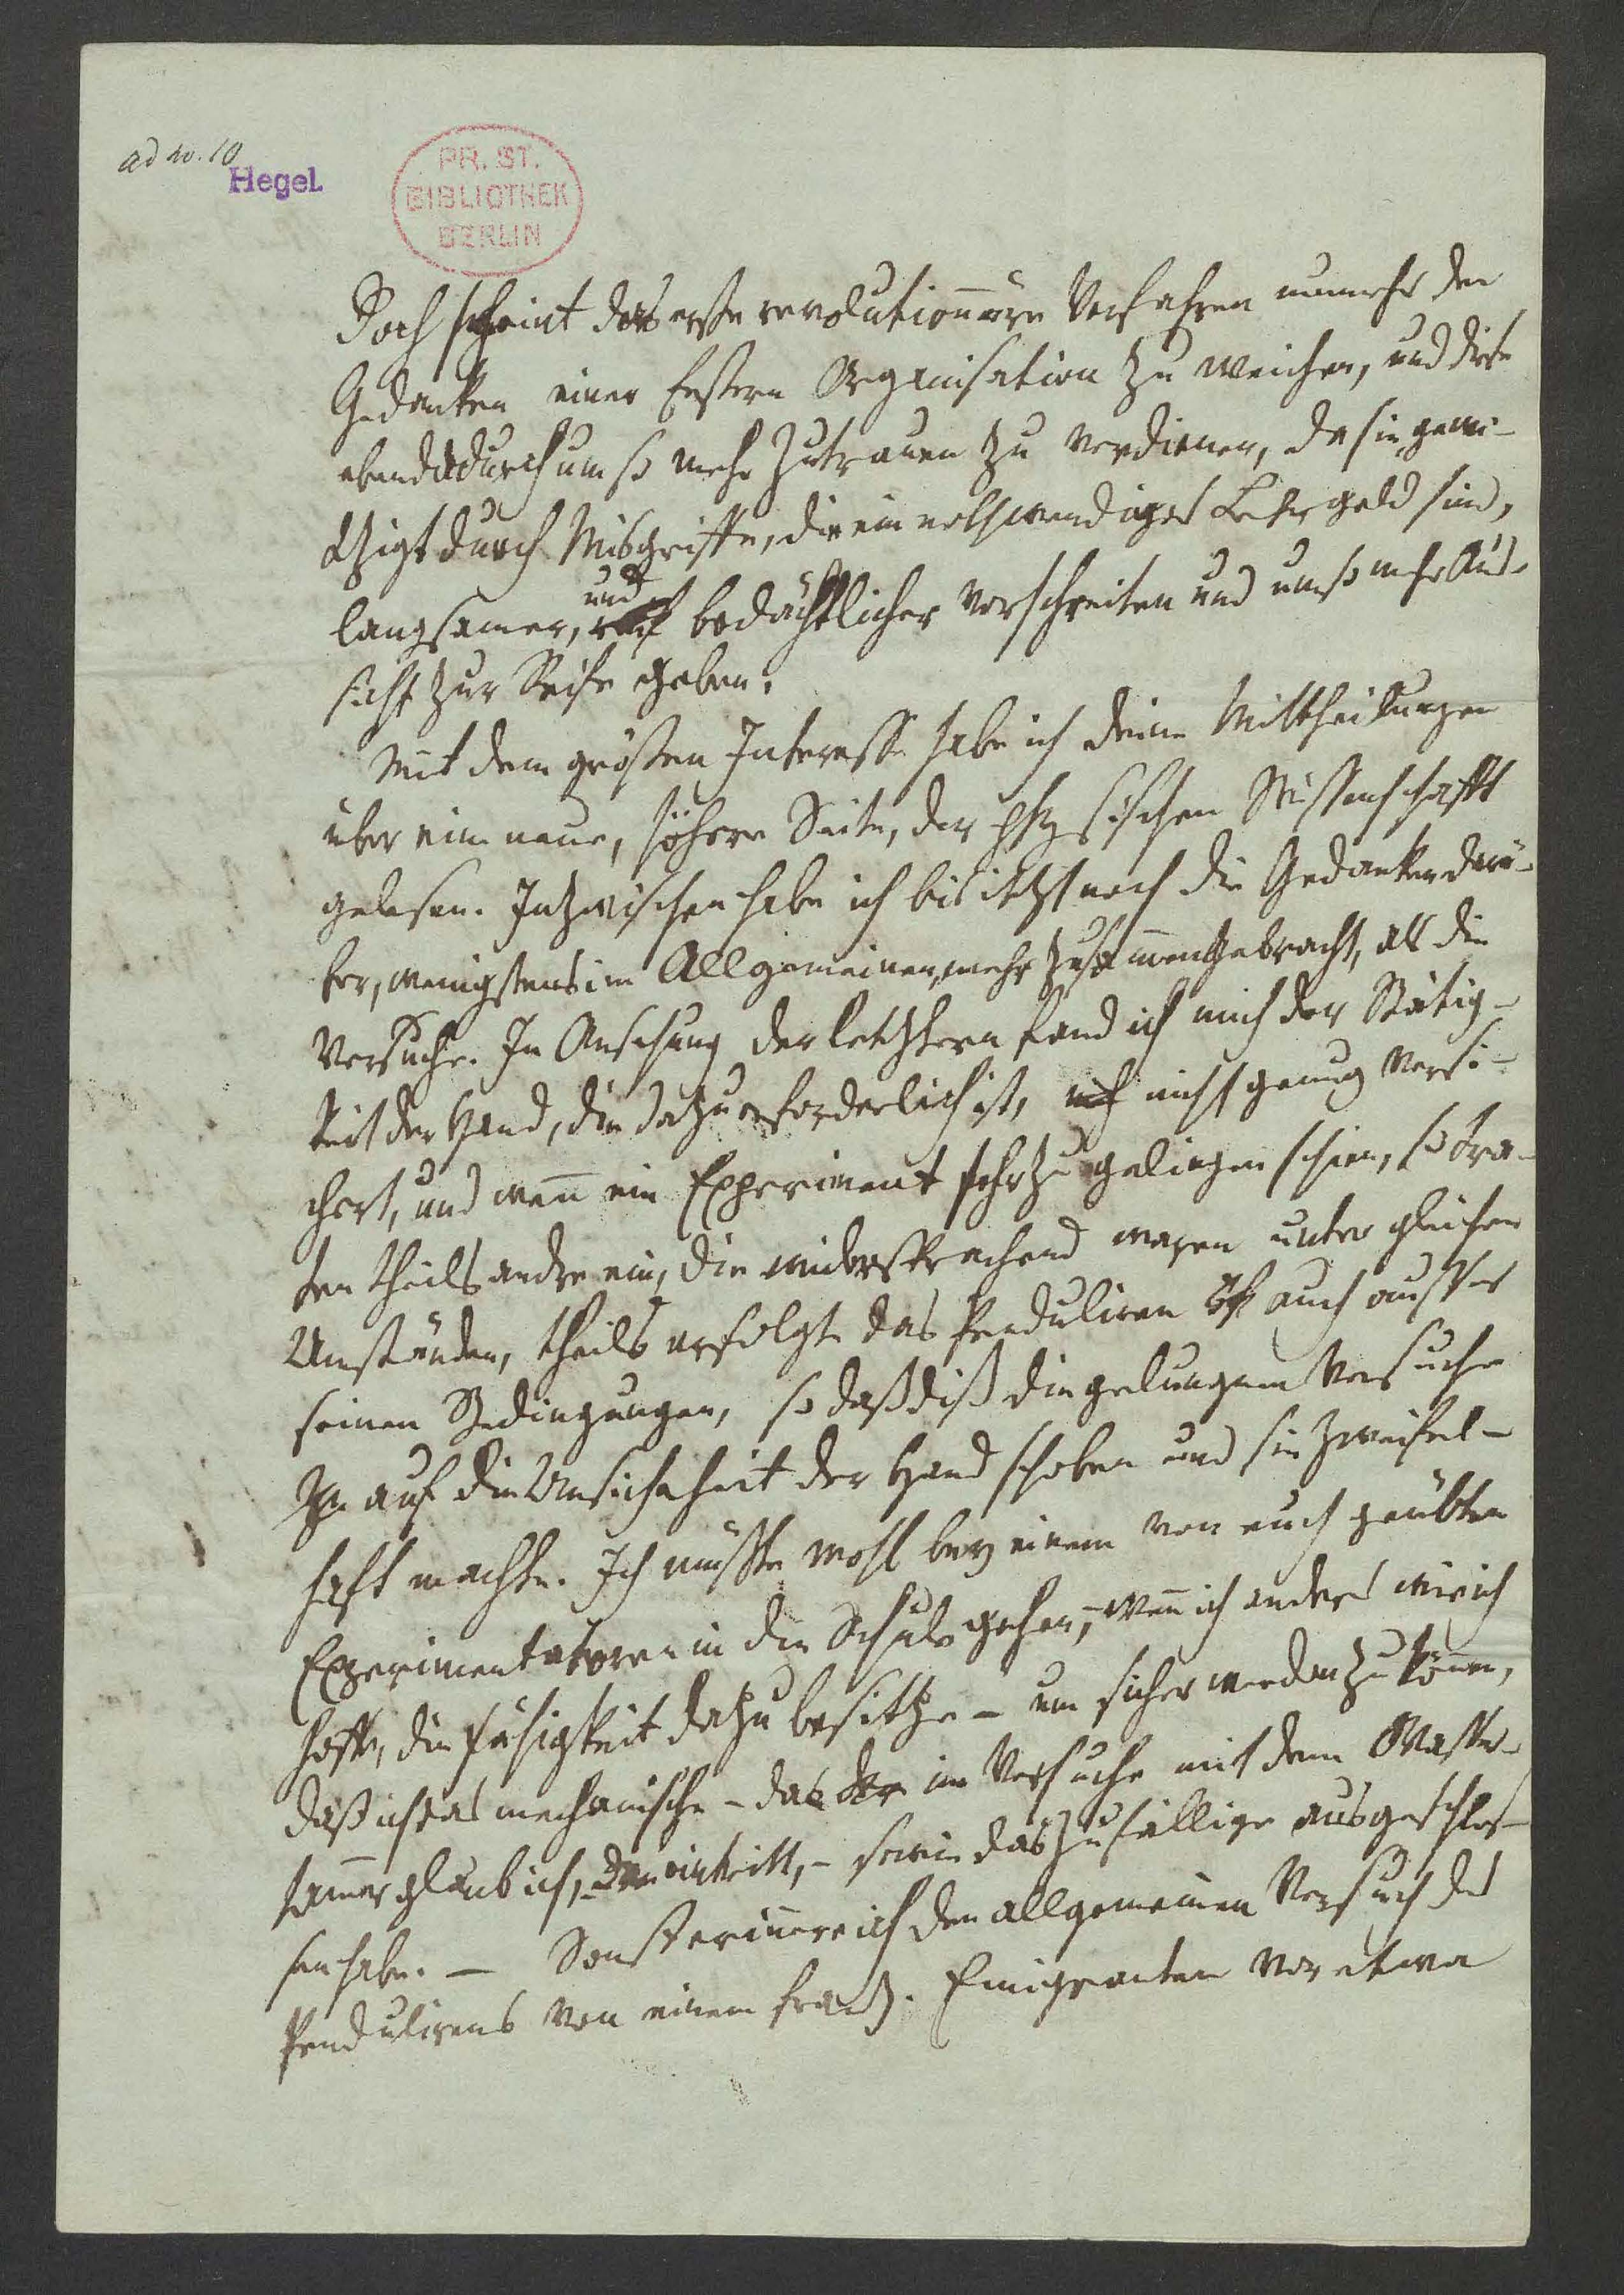 ad no. 10
Hegel.
PR. ST.
BIBLIOTHEK
BERLIN
Doch scheint das erste revolutionnäre Verfahren nunmehr den
Gedanken einer festern Organisation zu weichen, und diese
ebendadurch um so mehr Zutrauen zu verdienen, da sie, gewi-
tzigt durch Misgriffe, die ein nothwendiges Lehrgeld sind,
und
langsamer, bedächtlicher vorschreiten und um so mehr Aus-
sicht zur Reife geben.
Mit dem grösten Interesse habe ich deine Mittheilungen
über eine neue, höhere Seite, der physischen Wissenschafft
gelesen. Inzwischen habe ich bis itzt noch die Gedanken darü-
ber, wenigstens im Allgemeinen, mehr zusam̄engebracht, als die
Versuche. In Ansehung der letztern fand ich mich der Stätig-
keit der Hand, die dazu erforderlich ist, nicht genug versi-
chert, und wen̄ ein Experiment sehr zu gelingen schien, so tra-
ten theils andre ein, die widersprechend waren unter gleichen
Umständen, theils erfolgte das Penduliren auch ausser
seinen Bedingungen, so daß diß die gelungnen Versuche
auf die Unsicherheit der Hand schoben und sie zweifel-
haft machte. Ich müßte wohl bey einem von euch geübten
Experimentatoren in die Schule gehen, – wen̄ ich anders wie ich
hoffe, die Fähigkeit dazu besitze – um sicher werden zu kön̄en,
daß ich das mechanische – das im Versuche mit dem Wasser-
ham̄er glaub ich, eintritt, – sowie das zufällige ausgeschlos-
sen habe. – Sonst erin̄ere ich den allgemeinen Versuch des
Pendulirens von einem franz. Emigranten vor etwa